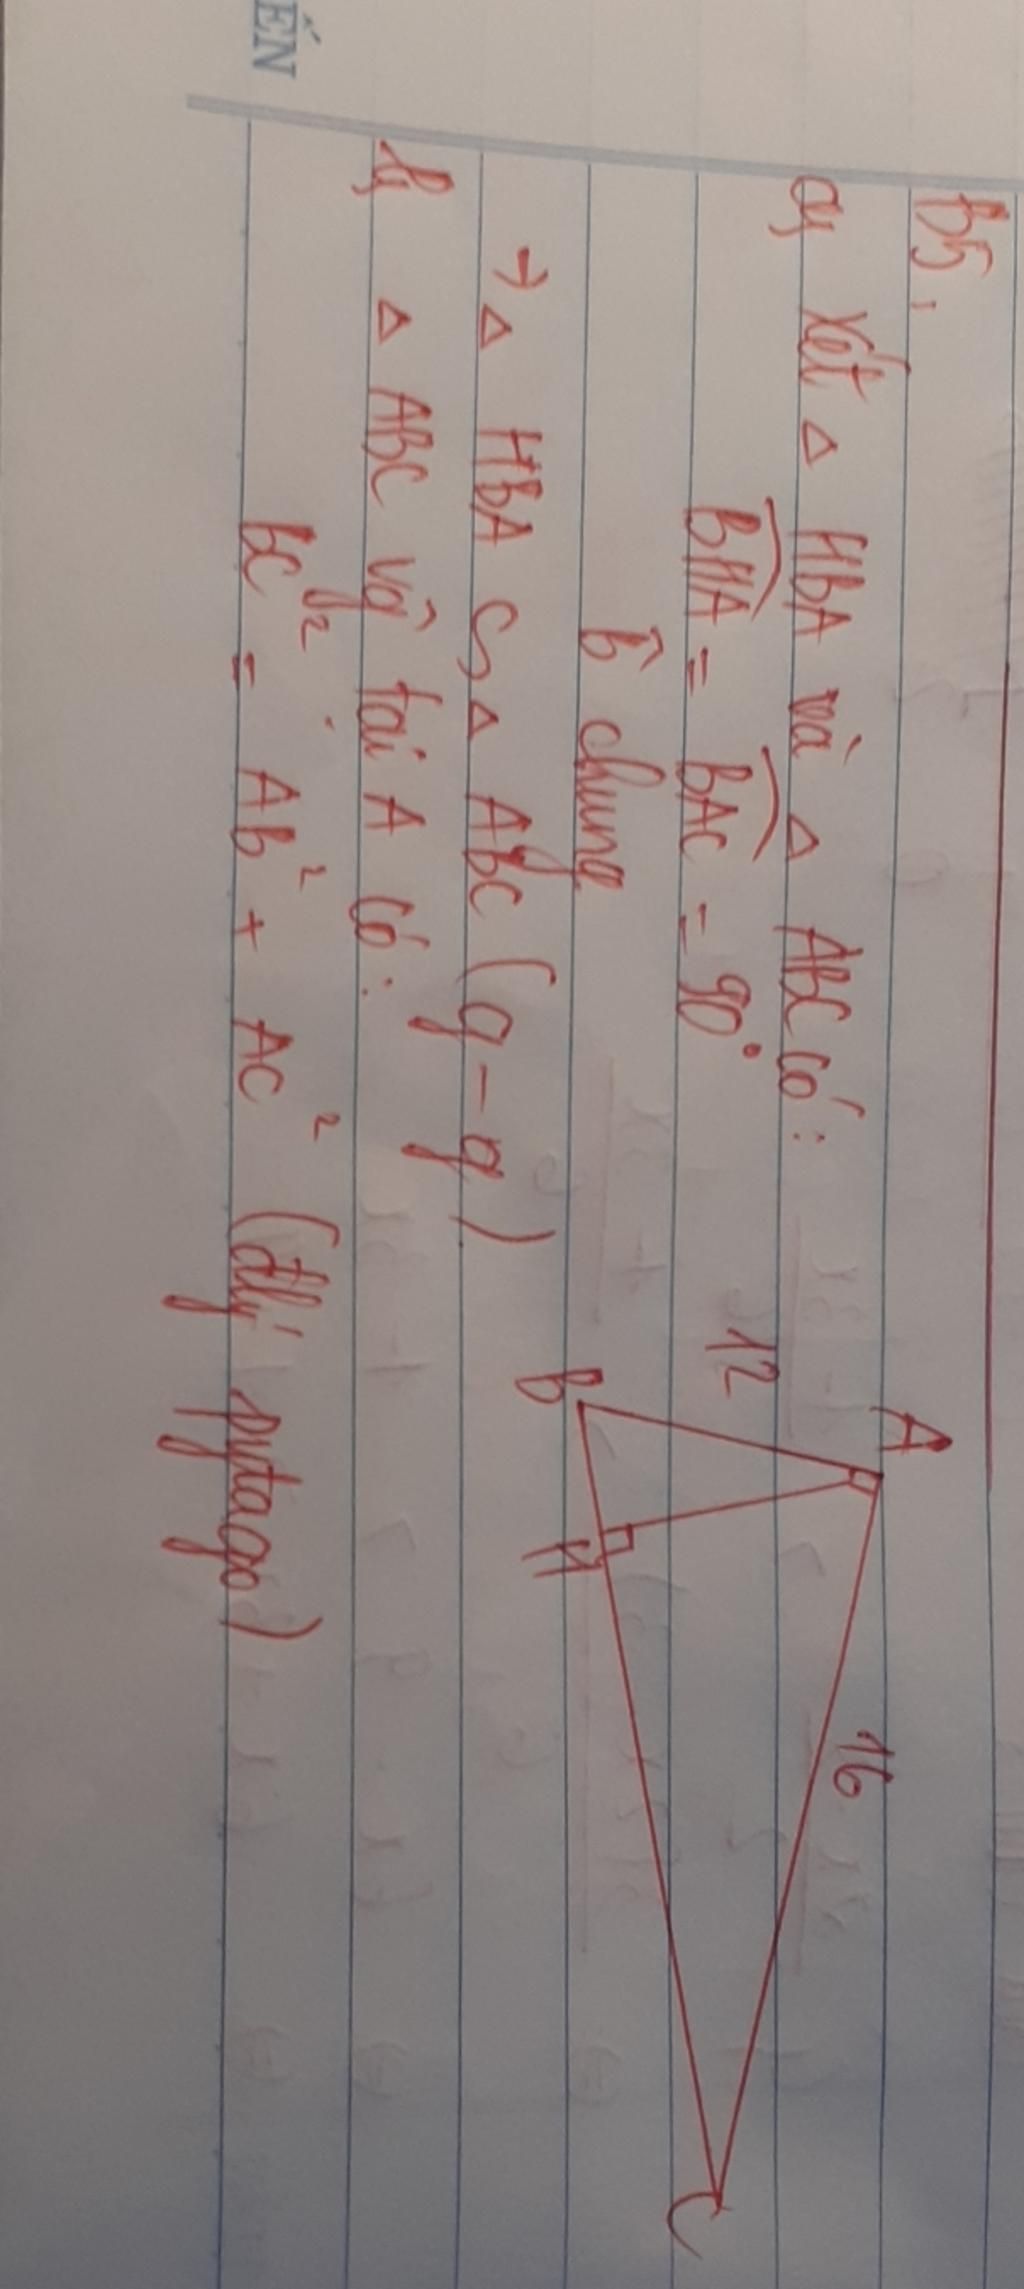 B5,
a, Xét △ HBA và △ ABC có:
BHA = BAC = 90°
B̂ chung
→ △ HBA ∽ △ ABC (g-g)
b, △ ABC vĝ tại A có:
BC² = AB² + AC² (đlý pytago)
A
12
16
B
H
C
ẾN